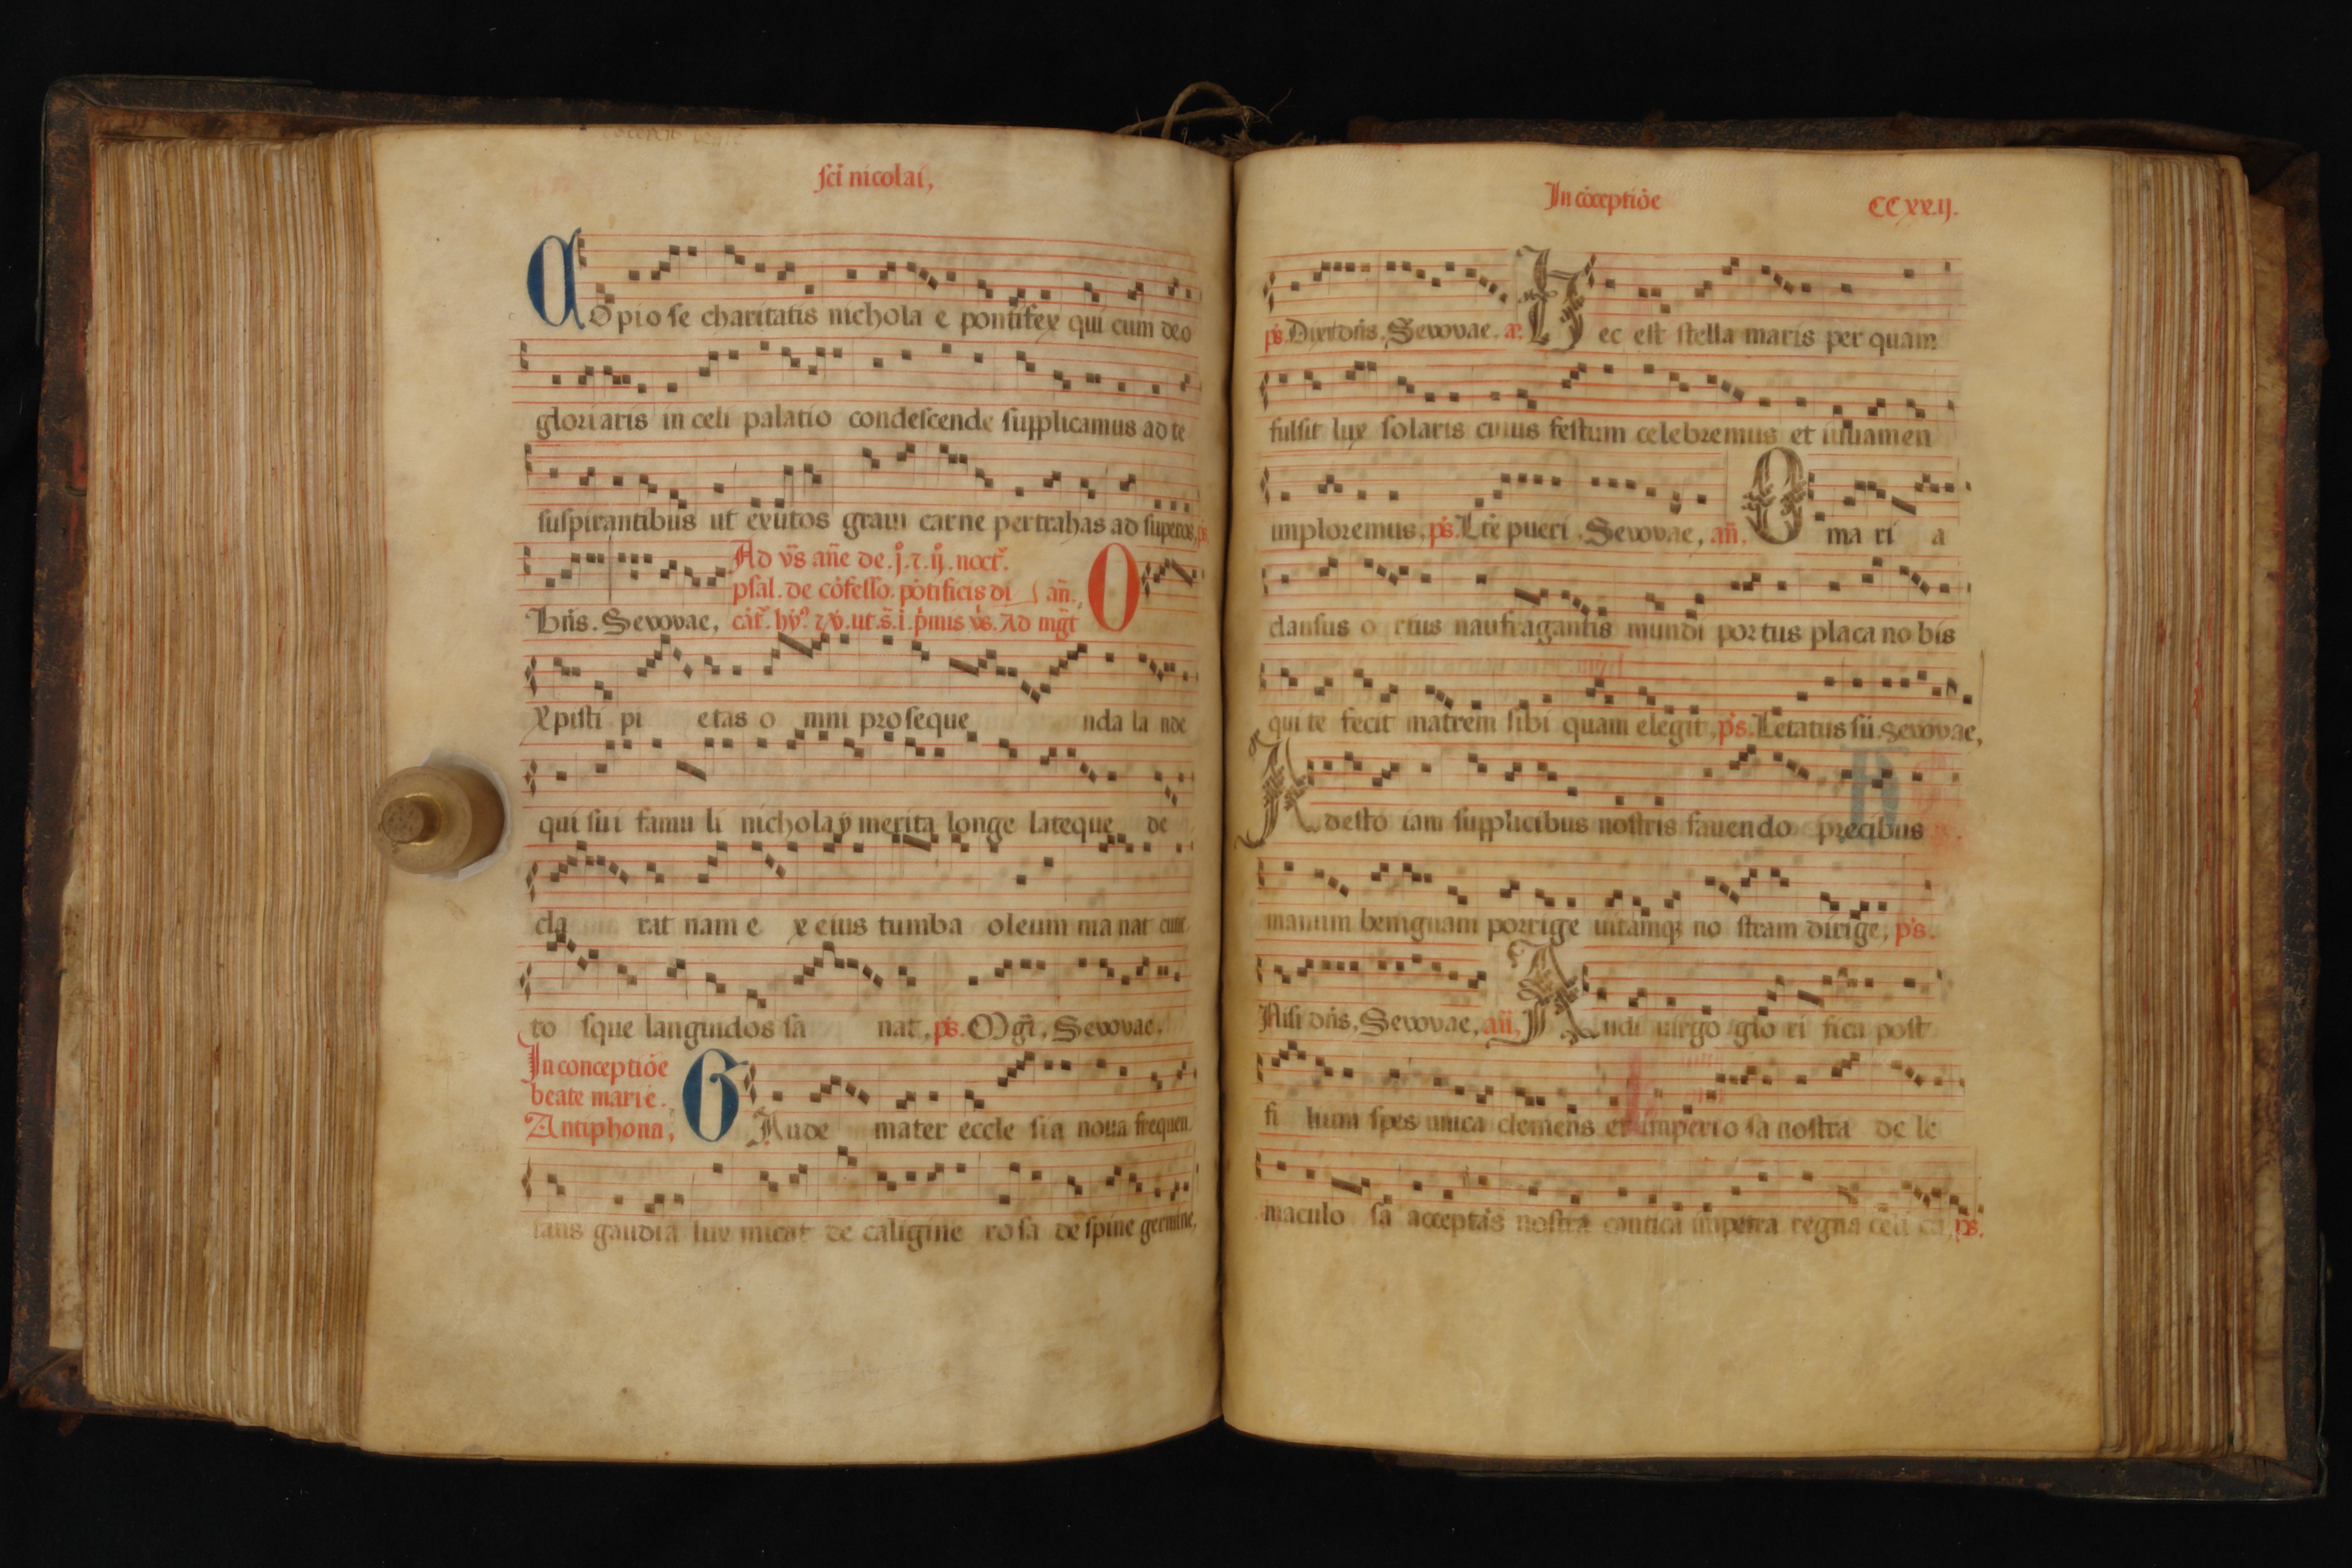 sci nicolai,
Copiose charitatis nichola e pontifex qui cum deo
gloriaris in celi palatio condescende supplicamus ad te
suspirantibus ut exutos graui carne pertrahas ad superos, ps.
Ad v̄s an̄e de .j. ⁊ .ij. noct̄.
psal. de cōfesso. pōtificis di an̄.
Dn̄s. Sevovae, cāt̄. hȳ. ⁊ v̄. ut. s̄. i. p̄mis v̄s. Ad mḡt
O
xpisti pi etas o mni proseque nda la ude
qui sui famu li nicholay merita longe lateque de
cla rat nam e x eius tumba oleum ma nat cunc
to sque languidos sa nat, ps. Mḡt. Sevovae.
In conceptiōe
beate marie.
Antiphona,
GAude mater eccle sia noua frequen
tans gaudia lux micat de caligine ro sa de spine germine,
In cōceptiōe CCxxij.
ps. Dixit dn̄s. Sevovae. a. Hec est stella maris per quam
fulsit lux solaris cuius festum celebremus et iuuamen
imploremus, ps. Lāte pueri. Sevovae, an̄. O ma ri a
clausus o rtus naufragantis mundi portus placa no bis
qui te fecit matrem sibi quam elegit, ps. Letatus sū. Sevovae,
Adesto iam supplicibus nostris fauendo precibus
manum benignam porrige uitamq; no stram dirige, ps.
Nisi dn̄s, Sevovae, an̄, Audi uirgo glo ri fica post
fi lium spes unica clemens et imperio sa nostra de le
maculo sa acceptās nostra cantica impetra regna celi ca, ps.